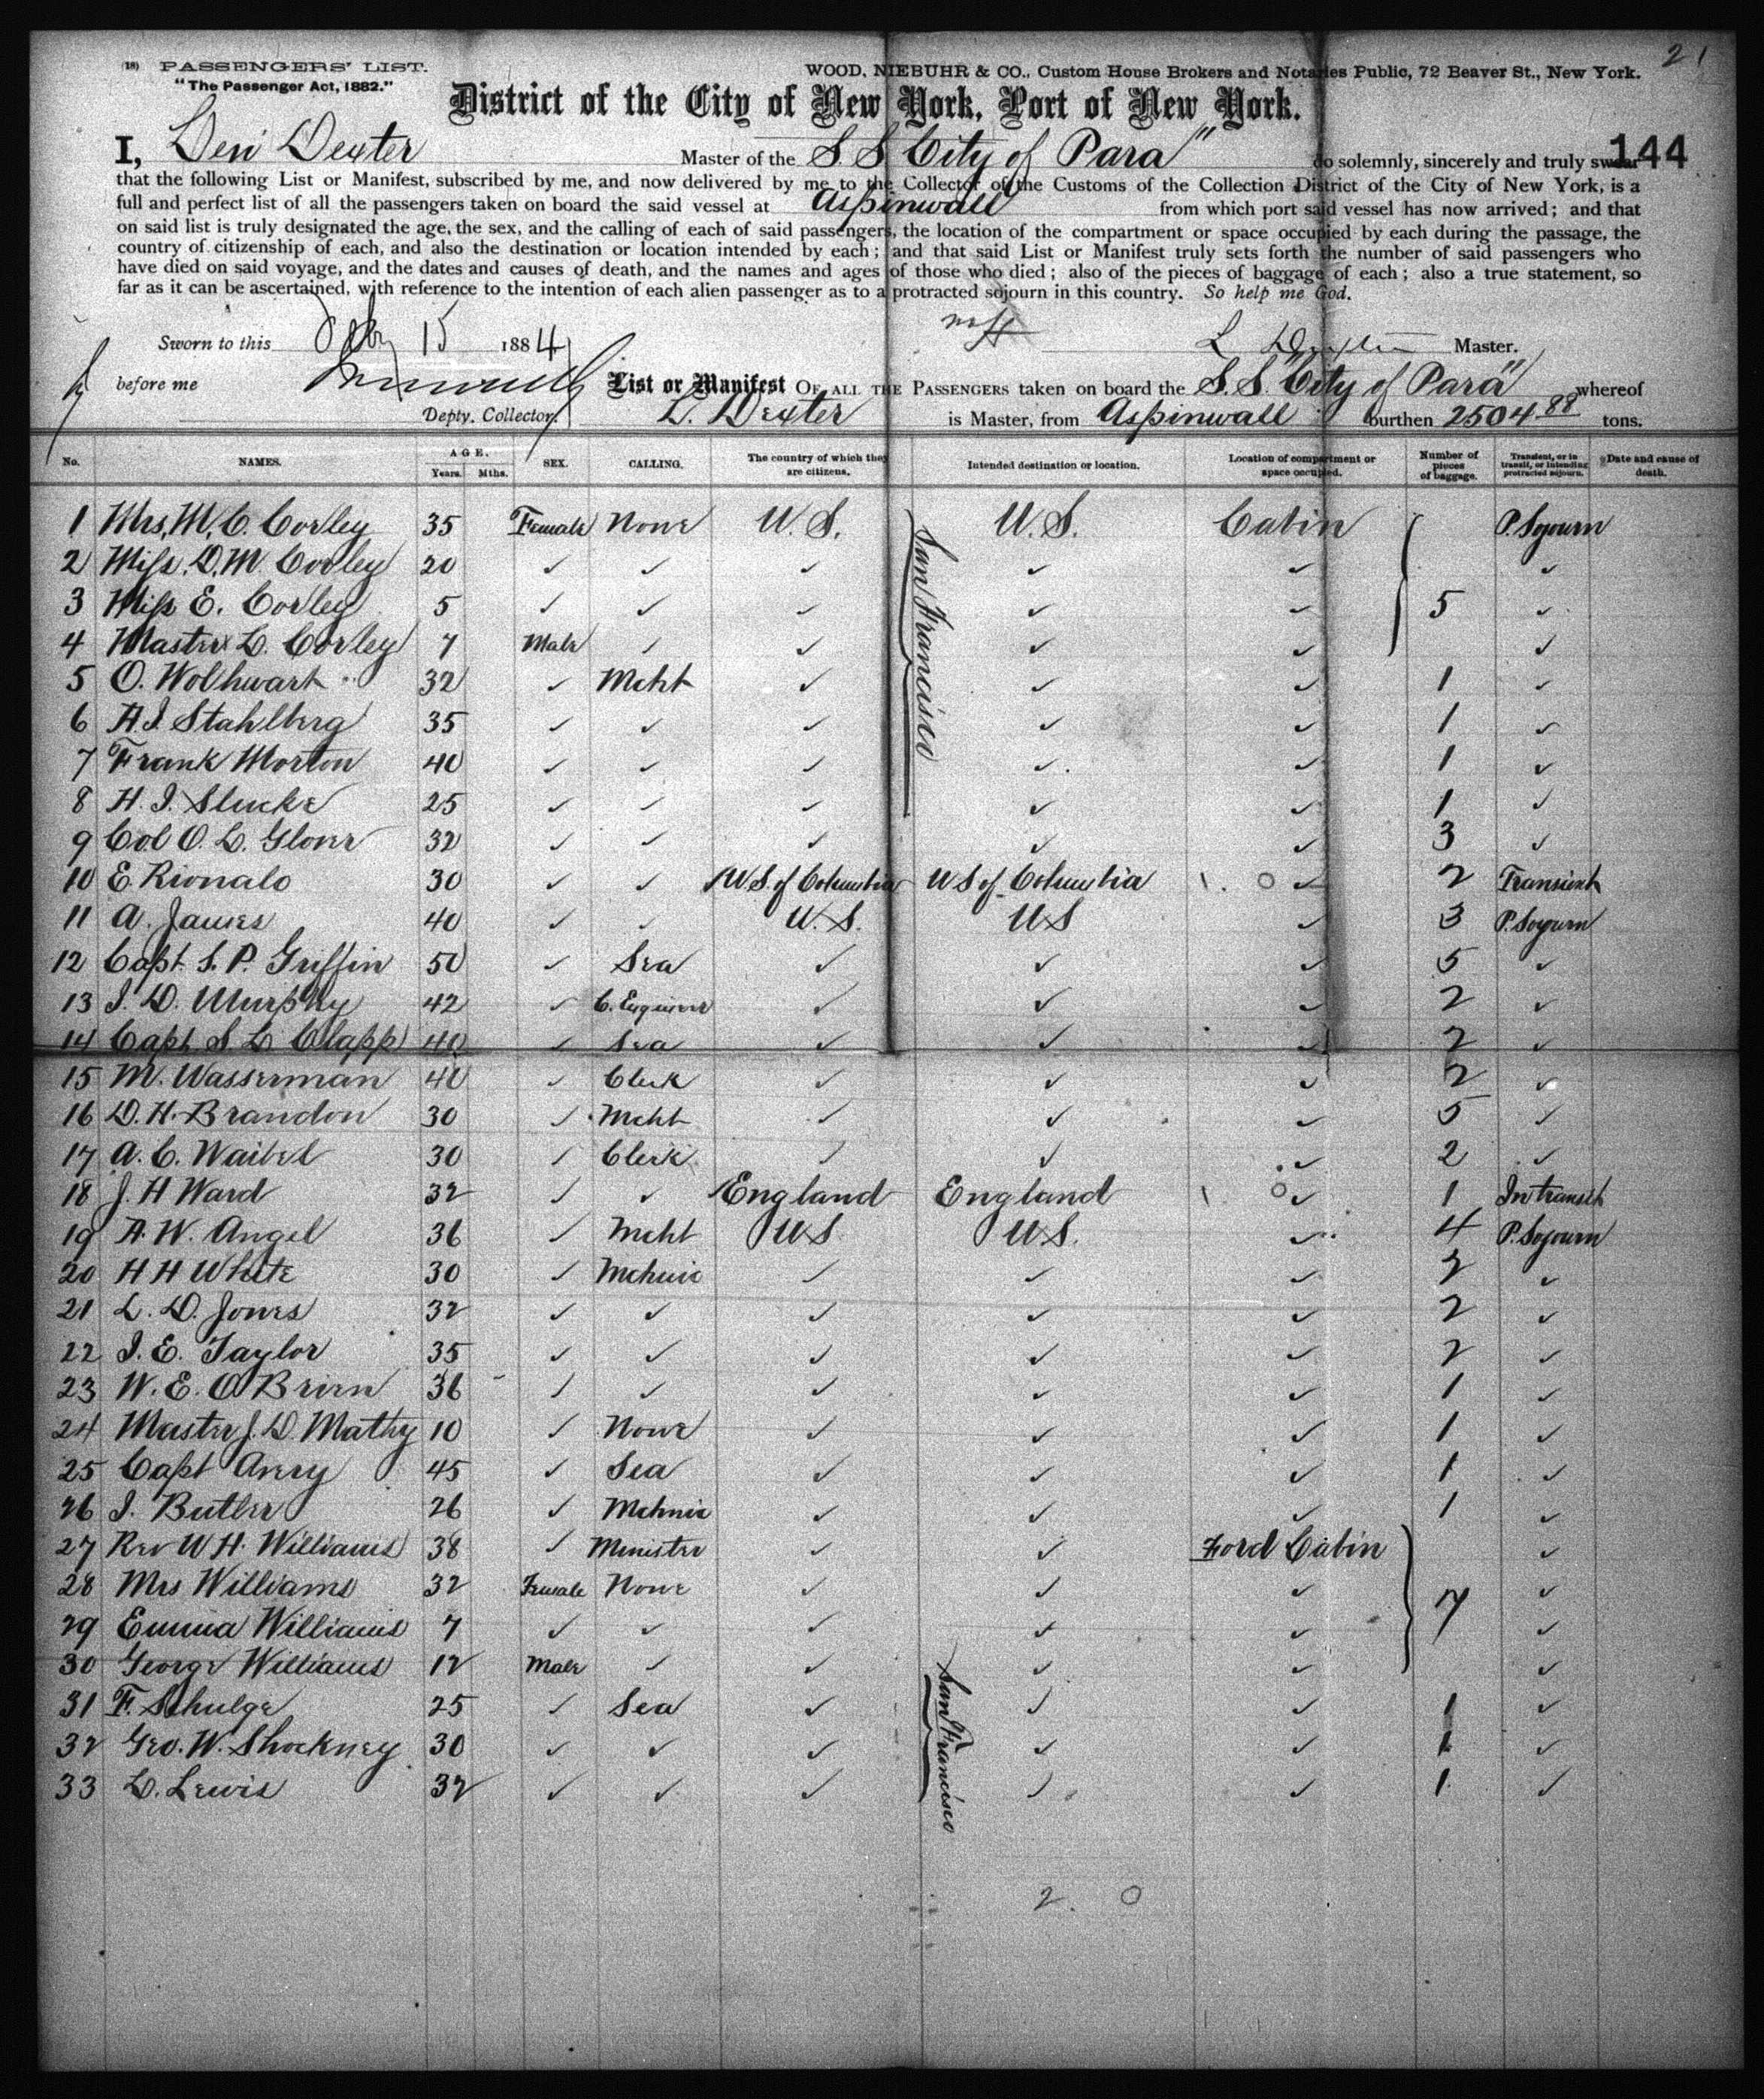 21
(18) PASSENGERS' LIST.
WOOD, NIEBUHR & CO., Custom House Brokers and Notaries Public, 72 Beaver St., New York.
"The Passenger Act, 1882."
District of the City of New York, Port of New York.
144
I, Levi Dexter Master of the S S City of Para" do solemnly, sincerely and truly swear
that the following List or Manifest, subscribed by me, and now delivered by me to the Collector of the Customs of the Collection District of the City of New York, is a
full and perfect list of all the passengers taken on board the said vessel at Aspinwall from which port said vessel has now arrived; and that
on said list is truly designated the age, the sex, and the calling of each of said passengers, the location of the compartment or space occupied by each during the passage, the
country of citizenship of each, and also the destination or location intended by each; and that said List or Manifest truly sets forth the number of said passengers who
have died on said voyage, and the dates and causes of death, and the names and ages of those who died; also of the pieces of baggage of each; also a true statement, so
far as it can be ascertained, with reference to the intention of each alien passenger as to a protracted sojourn in this country. So help me God.
Sworn to this 15 1884
L Dexter Master.
before me
List or Manifest OF ALL THE PASSENGERS taken on board the S.S. "City of Para" whereof
Depty. Collector.
L. Dexter is Master, from Aspinwall burthen 2504 88 tons.
No. NAMES. AGE. Years. Mths. SEX. CALLING. The country of which they are citizens. Intended destination or location. Location of compartment or space occupied. Number of pieces of baggage. Transient, or in transit, or intending protracted sojourn. Date and cause of death.
1 Mrs. M. C. Corley 35 Female None U.S. U.S. Cabin P. Sojourn
2 Miss. D. M Corley 20 ✓ ✓ ✓ ✓ ✓ ✓
3 Miss E. Corley 5 ✓ ✓ ✓ ✓ ✓ 5 ✓
4 Master L. Corley 7 Male ✓ ✓ ✓ ✓ ✓
San Francisco
5 O. Wolhwart 32 ✓ Mcht ✓ ✓ ✓ 1 ✓
6 A. I. Stahlberg 35 ✓ ✓ ✓ ✓ ✓ 1 ✓
7 Frank Morton 40 ✓ ✓ ✓ ✓ ✓ 1 ✓
8 H. I. Slucke 25 ✓ ✓ ✓ ✓ ✓ 1 ✓
9 Col O. L. Glover 32 ✓ ✓ ✓ ✓ ✓ 3 ✓
10 E. Rionalo 30 ✓ ✓ U.S. of Columbia U S of Columbia ✓ 2 Transient
11 A. James 40 ✓ ✓ U.S. US ✓ 3 P. Sojourn
12 Capt. S. P. Griffin 50 ✓ Sea ✓ ✓ ✓ 5 ✓
13 I. D. Murphy 42 ✓ C. Engineer ✓ ✓ ✓ 2 ✓
14 Capt S. L. Clapp 40 ✓ Sea ✓ ✓ ✓ 2 ✓
15 M. Wasserman 40 ✓ Clerk ✓ ✓ ✓ 2 ✓
16 D. H. Brandon 30 ✓ Mcht ✓ ✓ ✓ 5 ✓
17 A. C. Waibel 30 ✓ Clerk ✓ ✓ ✓ 2 ✓
18 J. H Ward 32 ✓ ✓ England England ✓ 1 In transit
19 A. W. Angel 36 ✓ Mcht US US. ✓ 4 P. Sojourn
20 H H White 30 ✓ Mchnic ✓ ✓ ✓ 2 ✓
21 L. D. Jones 32 ✓ ✓ ✓ ✓ ✓ 2 ✓
22 I. E. Taylor 35 ✓ ✓ ✓ ✓ ✓ 2 ✓
23 W. E. O Brien 36 ✓ ✓ ✓ ✓ ✓ 1 ✓
24 Master J. D. Mathy 10 ✓ None ✓ ✓ ✓ 1 ✓
25 Capt Avery 45 ✓ Sea ✓ ✓ ✓ 1 ✓
26 I. Butler 26 ✓ Mchnic ✓ ✓ ✓ 1 ✓
27 Rev W H. Williams 38 ✓ Minister ✓ ✓ Ford Cabin ✓
28 Mrs Williams 32 Female None ✓ ✓ ✓ 7 ✓
29 Emma Williams 7 ✓ ✓ ✓ ✓ ✓ ✓
30 George Williams 12 Male ✓ ✓ ✓ ✓ ✓
San Francisco
31 F. Schulge 25 ✓ Sea ✓ ✓ ✓ 1 ✓
32 Geo. W. Shockney 30 ✓ ✓ ✓ ✓ ✓ 1 ✓
33 L. Lewis 32 ✓ ✓ ✓ ✓ ✓ 1 ✓
2. 0